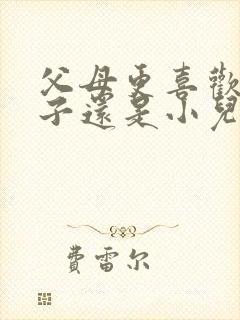 父母更喜歡
子還是小兒
費雷尔